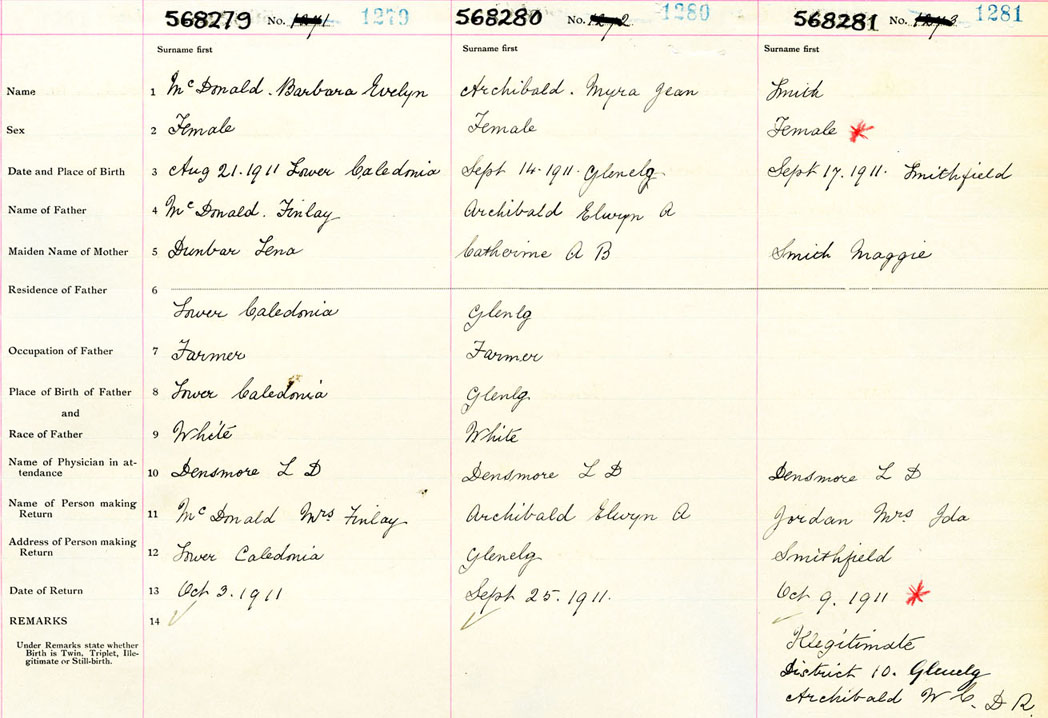 568279 No. 1271 1279 568280 No. 1272 1280 568281 No. 1273 1281
Surname first Surname first Surname first
Name 1 McDonald. Barbara Evelyn Archibald. Myra Jean Smith
Sex 2 Female Female Female *
Date and Place of Birth 3 Aug 21. 1911 Lower Caledonia Sept 14. 1911. Glenelg Sept 17. 1911. Smithfield
Name of Father 4 McDonald. Finlay Archibald Elwyn A
Maiden Name of Mother 5 Dunbar Lena Catherine A B Smith Maggie
Residence of Father 6
Lower Caledonia Glenlg
Occupation of Father 7 Farmer Farmer
Place of Birth of Father 8 Lower Caledonia Glenlg.
and
Race of Father 9 White White
Name of Physician in at-
tendance 10 Densmore L D Densmore L D Densmore L D
Name of Person making
Return 11 McDonald Mrs Finlay Archibald Elwyn A Jordan Mrs Ida
Address of Person making
Return 12 Lower Caledonia Glenelg Smithfield
Date of Return 13 Oct 3. 1911 Sept 25. 1911. Oct 9. 1911 *
REMARKS 14
Under Remarks state whether
Birth is Twin. Triplet, Ille-
gitimate or Still-birth.
Illegitimate
District 10. Glenelg
Archibald W C. D R